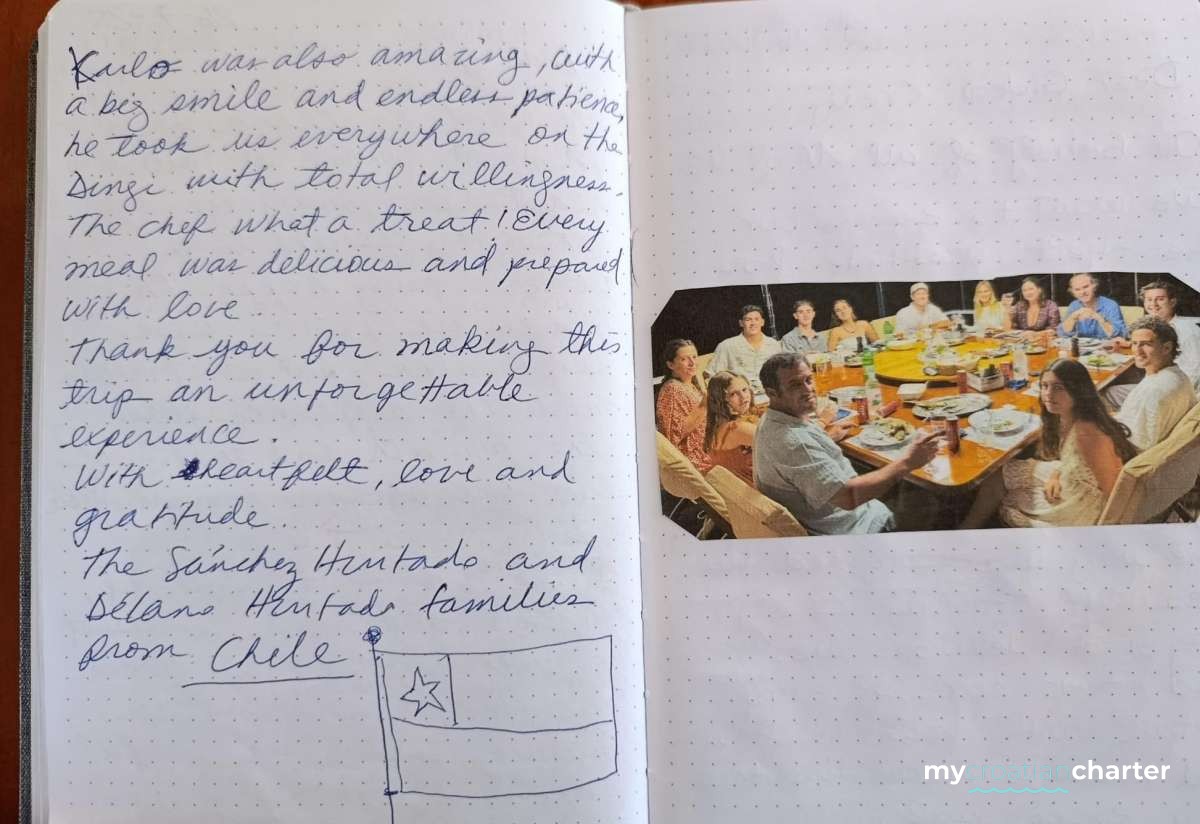 Karlo was also amazing, with
a big smile and endless patience,
he took us everywhere on the
Dingi with total willingness.
The chef what a treat! Every
meal was delicious and prepared
with love.
Thank you for making this
trip an unforgettable
experience.
With heartfelt, love and
gratitude.
The Sánchez Hurtado and
Délano Hurtado families
from Chile
mycroatiancharter